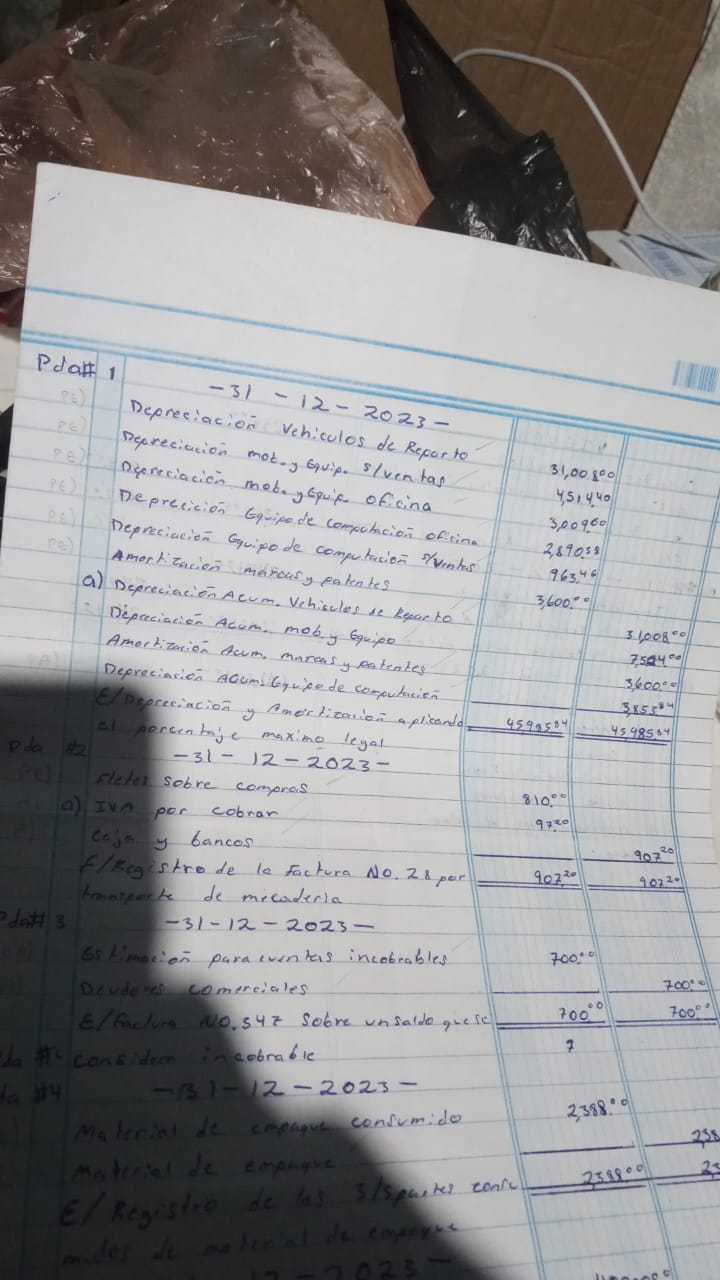 Pda# 1
-31-12-2023-
PE) Depreciación Vehiculos de Reparto 31,008.00
PE) Depreciación mob. y Equip. S/ventas 4,514.40
PE) Depreciación mob. y Equip. oficina 3,009.60
PE) Depreción Equipo de computación oficina 2,890.38
PE) Depreciación Equipo de computación S/Ventas 963.46
PE) Amortización marcas y patentes 3,600.00
a) Depreciación Acum. Vehiculos de Reparto 31,008.00
Depreciación Acum. mob y Equipo 7,524.00
Amortización Acum. marcas y patentes 3,600.00
Depreciación Acum. Equipo de computación 3,853.84
E/Depreciación y Amortización aplicando 45,985.84 45,985.84
el porcentaje maximo legal
Pda #2 -31-12-2023-
fletes sobre compras 810.00
a) IVA por cobrar 97.20
Caja y bancos 907.20
E/Registro de la factura No. 28 por 907.20 907.20
transporte de mecaderia
Pda# 3 -31-12-2023-
Estimación para cuentas incobrables 700.00
Deudores comerciales 700.00
E/factura No. 347 Sobre un saldo que se 700.00 700.00
considera incobrable
#4 -31-12-2023-
Material de empaque consumido 2,388.00
Material de empaque
E/Registro de las 3/5 partes consu 2388.00
midos de material de empaque
12-2023-